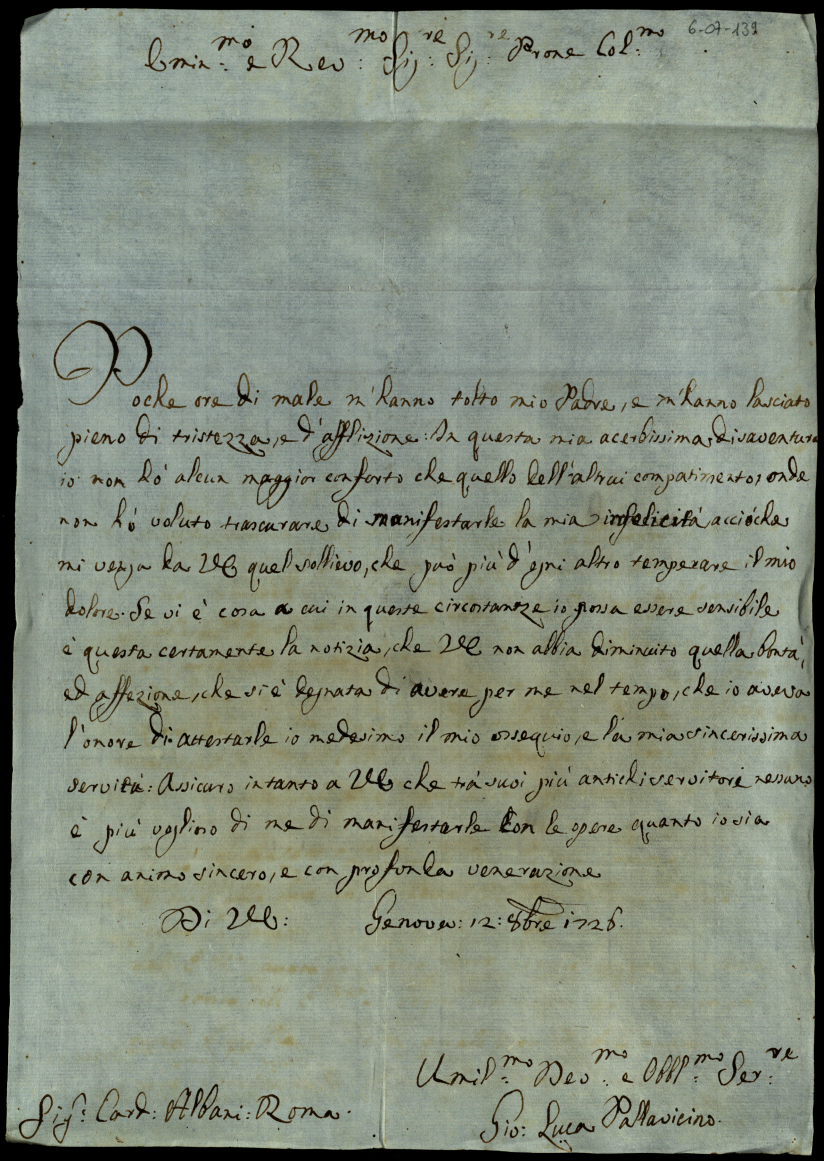 6-07-139
Emin:mo e Rev:mo Sig:re Sig:re Prone Col:mo
Poche ore di male m'hanno tolto mio Padre, e m'hanno lasciato
pieno di tristezza, e d'afflizione: In questa mia acerbissima disaventura
io non hó alcun maggior conforto che quello dell'altrui compatimento; onde
non hó voluto trascurare di manifestarle la mia infelicitá, accióche
mi venga da VE quel sollievo, che può più d'ogni altro temperare il mio
dolore. Se vi è cosa a cui in queste circostantze io possa essere sensibile
è questa certamente la notizia, che VE non abbia diminuito quella bontá,
ed affezione, che si è degnata di avere per me nel tempo, che io aveva
l'onore di attestarle io medesimo il mio ossequio, e la mia sincerissima
servitú: Assicuro intanto a VE che trá suoi piú antichi servitori nessuno
è piú voglioso di me di manifestarle con le opere quanto io sia
con animo sincero, e con profonda venerazione
Di VE: Genova: 12: 8bre 1726.
Umil:mo Dev:mo e Obbl:mo Ser:re
Sig: Card: Albani: Roma.
Gio: Luca Pallavicino.